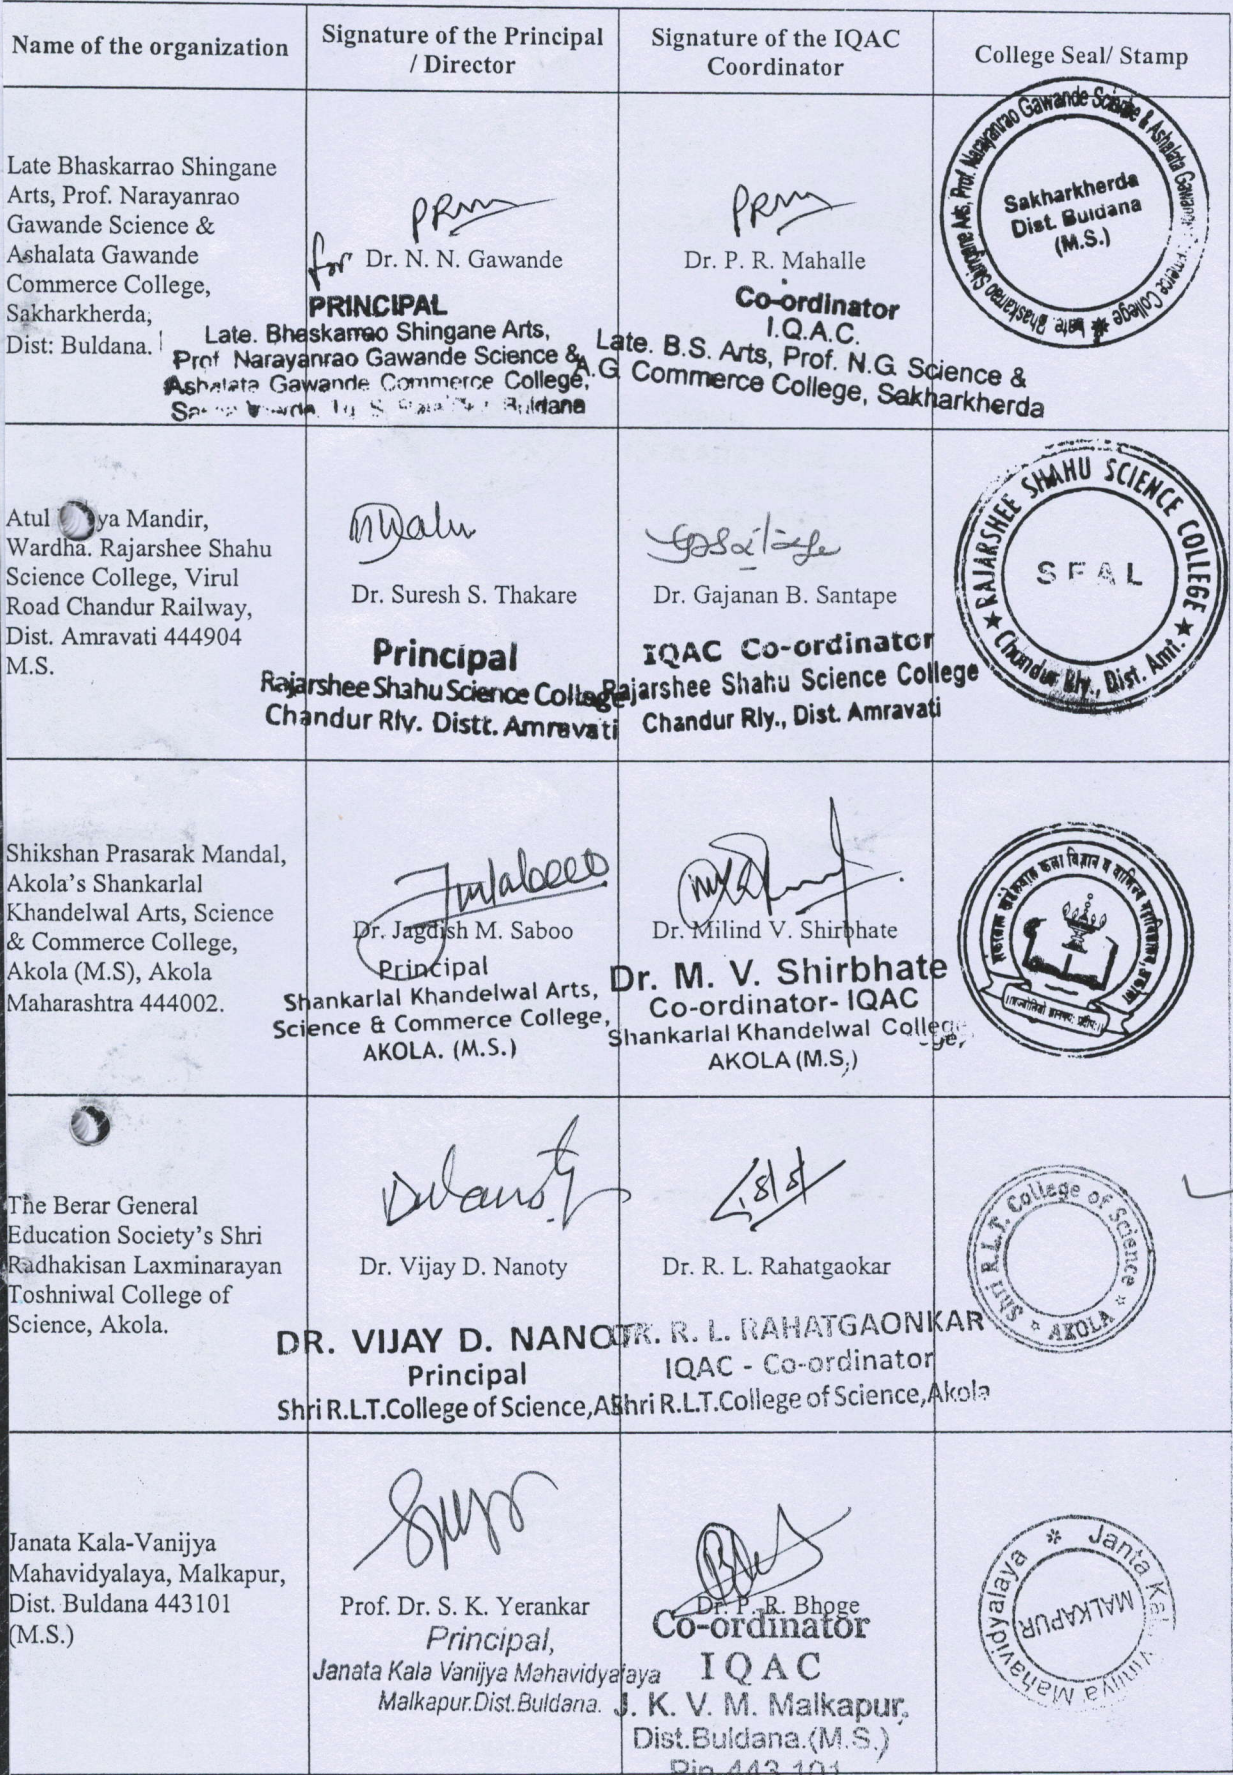 Name of the organization
Signature of the Principal
/ Director
Signature of the IQAC
Coordinator
College Seal/ Stamp
Late Bhaskarrao Shingane
Arts, Prof. Narayanrao
Gawande Science &
Ashalata Gawande
Commerce College,
Sakharkherda,
Dist: Buldana.
PRM
for Dr. N. N. Gawande
PRINCIPAL
Late. Bhaskarrao Shingane Arts,
Prof Narayanrao Gawande Science &
Ashalata Gawande Commerce College,
Buldana
PRM
Dr. P. R. Mahalle
Co-ordinator
I.Q.A.C.
Late. B.S. Arts, Prof. N.G. Science &
A.G. Commerce College, Sakharkherda
Late Bhaskarrao Shingane Arts, Prof. Narayanrao Gawande Science & Ashalata Gawande Commerce College
Sakharkherda
Dist. Buldana
(M.S.)
Atul ya Mandir,
Wardha. Rajarshee Shahu
Science College, Virul
Road Chandur Railway,
Dist. Amravati 444904
M.S.
Dr. Suresh S. Thakare
Principal
Rajarshee Shahu Science College
Chandur Rlv. Distt. Amravati
Dr. Gajanan B. Santape
IQAC Co-ordinator
Rajarshee Shahu Science College
Chandur Rly., Dist. Amravati
★ RAJARSHEE SHAHU SCIENCE COLLEGE ★
Chandur Rly., Dist. Amt.
SEAL
Shikshan Prasarak Mandal,
Akola's Shankarlal
Khandelwal Arts, Science
& Commerce College,
Akola (M.S), Akola
Maharashtra 444002.
Dr. Jagdish M. Saboo
Principal
Shankarlal Khandelwal Arts,
Science & Commerce College,
AKOLA. (M.S.)
Dr. Milind V. Shirbhate
Dr. M. V. Shirbhate
Co-ordinator- IQAC
Shankarlal Khandelwal College,
AKOLA (M.S.)
कला विज्ञान व वाणिज्य महाविद्यालय
The Berar General
Education Society's Shri
Radhakisan Laxminarayan
Toshniwal College of
Science, Akola.
Dr. Vijay D. Nanoty
DR. VIJAY D. NANOTY
Principal
Shri R.L.T.College of Science,A
Dr. R. L. Rahatgaokar
DR. R. L. RAHATGAONKAR
IQAC - Co-ordinator
Shri R.L.T.College of Science,Akola
Shri R.L.T. College of Science
* AKOLA *
Janata Kala-Vanijya
Mahavidyalaya, Malkapur,
Dist. Buldana 443101
(M.S.)
Prof. Dr. S. K. Yerankar
Principal,
Janata Kala Vanijya Mahavidyalaya
Malkapur.Dist.Buldana.
Dr. P. R. Bhoge
Co-ordinator
IQAC
J. K. V. M. Malkapur,
Dist.Buldana.(M.S.)
Pin 443 101
* Janta Kala Vanijya Mahavidyalaya
MALKAPUR